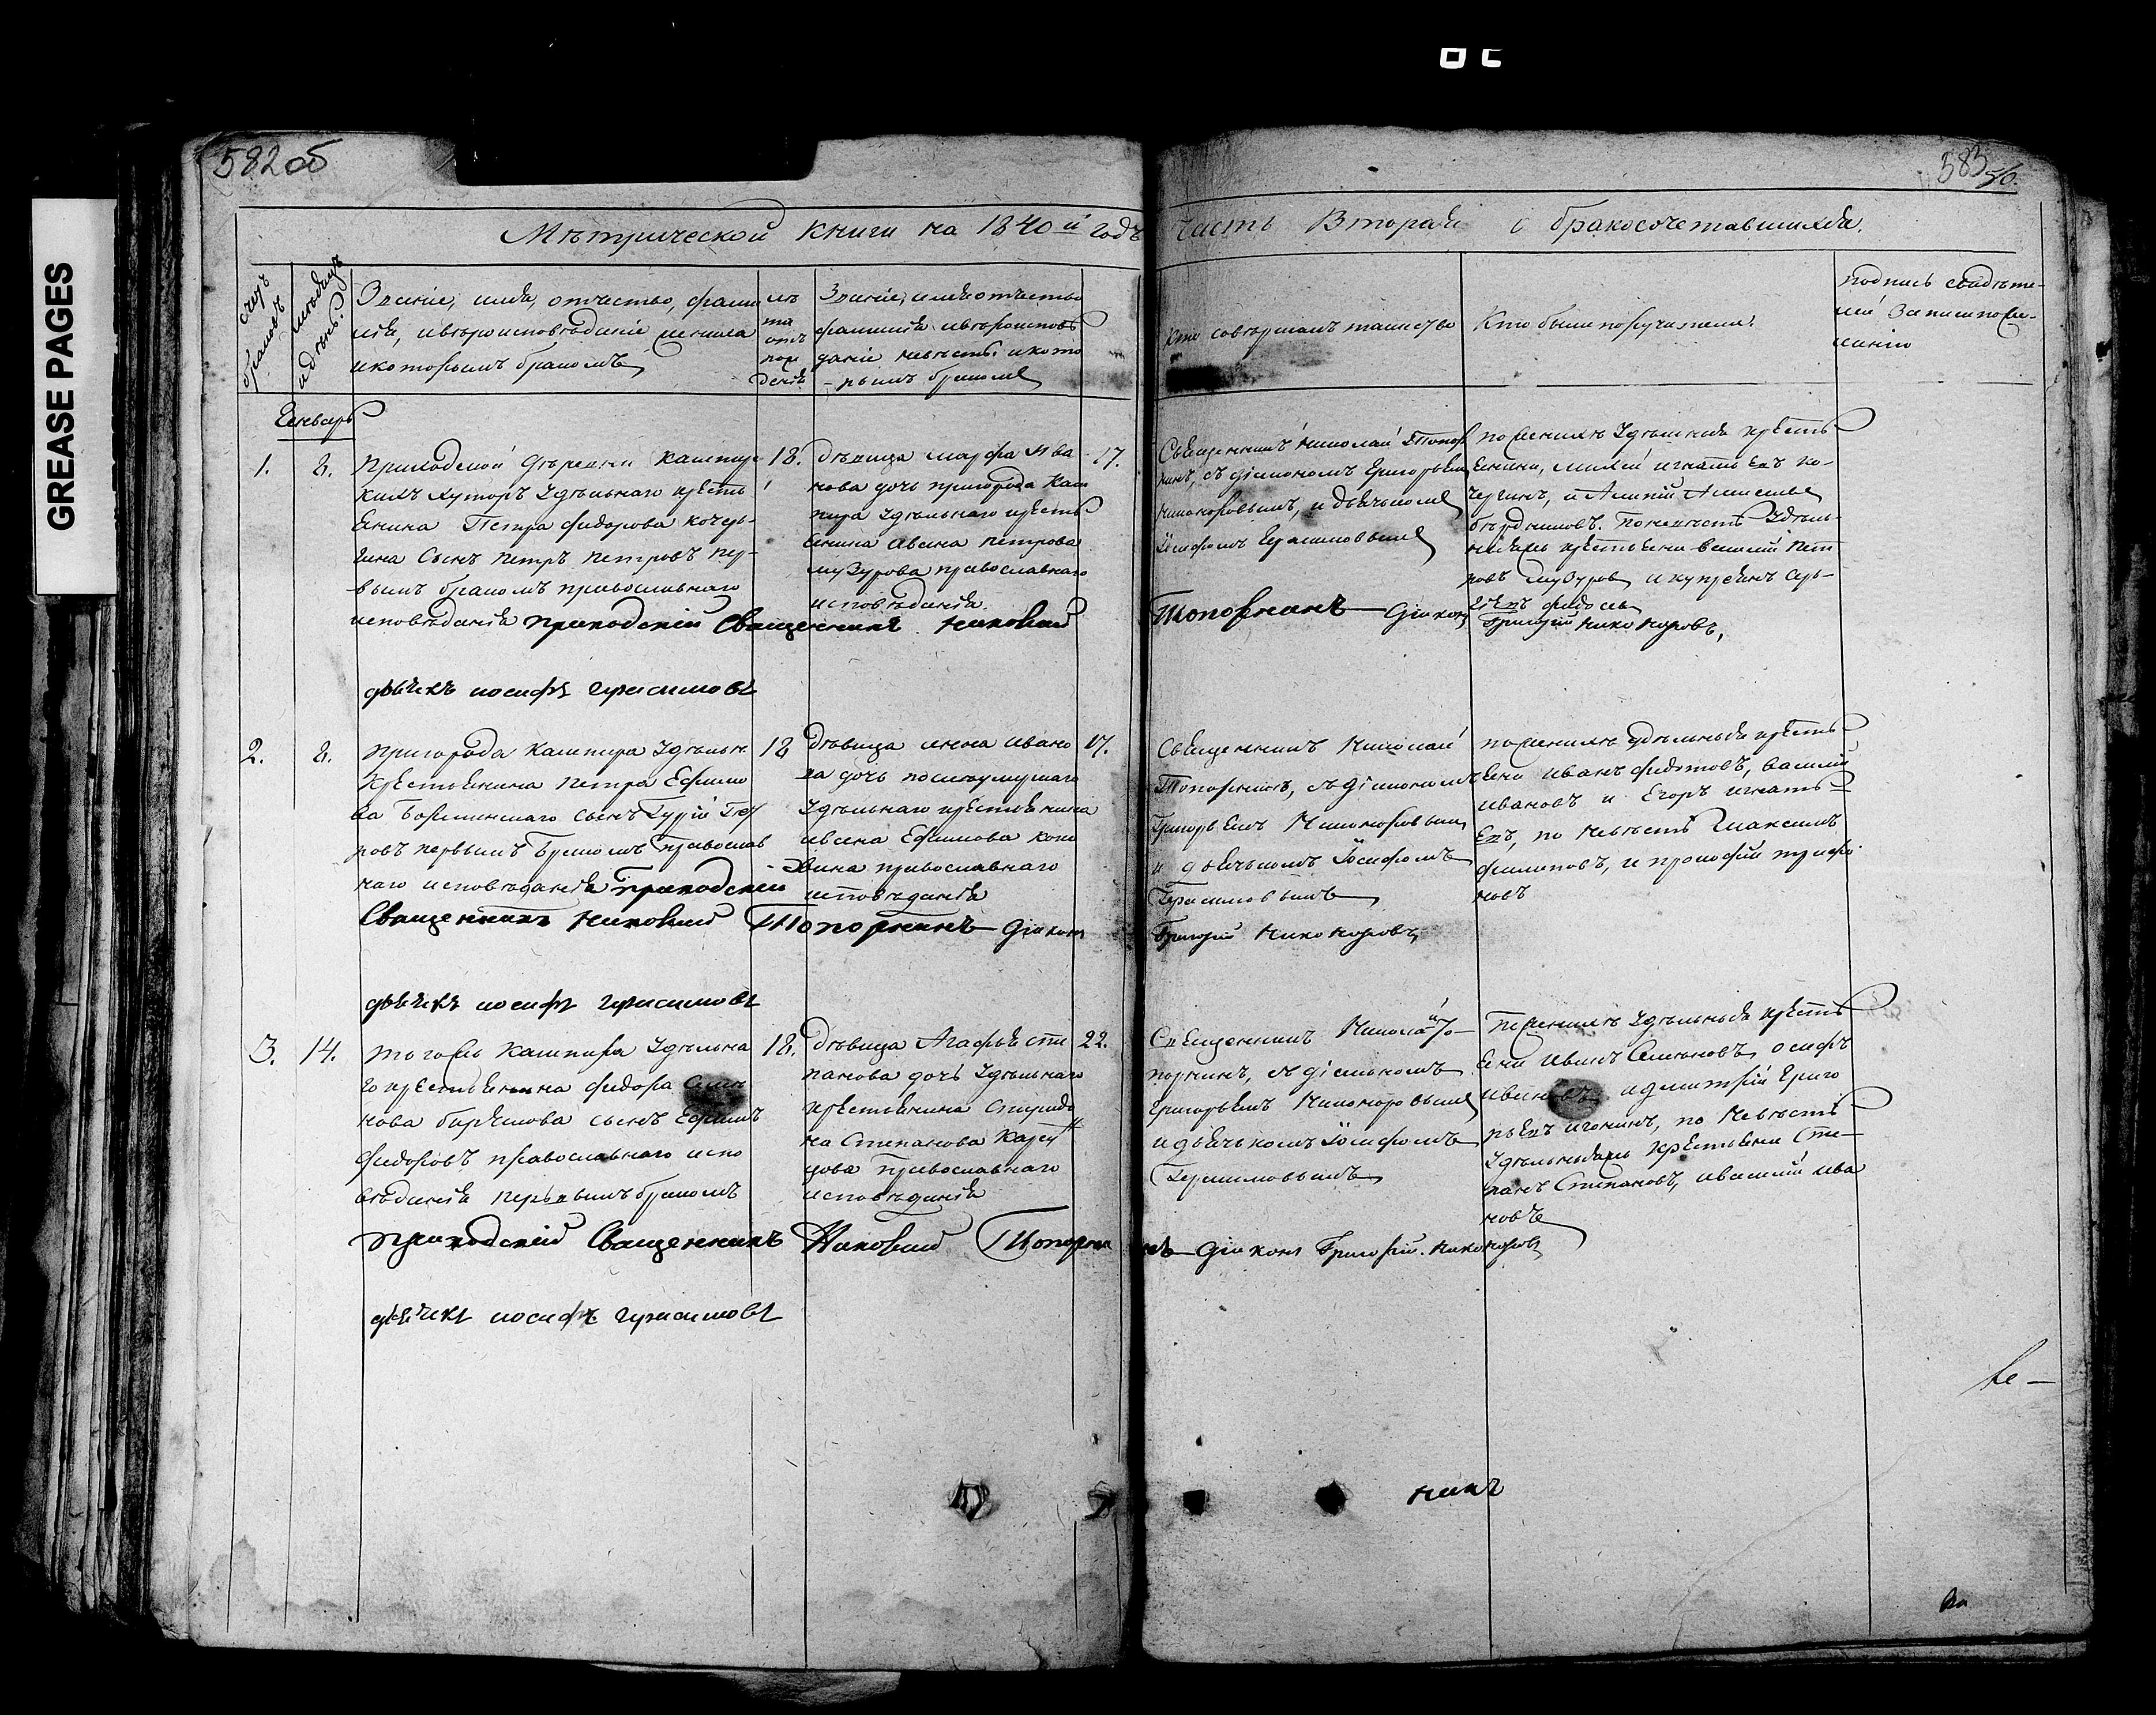 GREASE PAGES
582 об
583
56.
Метрической книги на 1840й годъ
часть Вторая о бракосочетавшихся.
счетъ браковъ
месяцъ и день.
Звание, имя, отчество, фами
лия, и вероисповедание жениха
и которымъ бракомъ
ле
та
отъ
рож
дения
Звание, имя отчество
фамилия и вероиспове
дание невесты и кото
-рымъ бракомъ
кто совершалъ таинство
Кто были поручители.
подпись свидете-
лей записи по же-
ланию
Генварь
1.
8.
Приходской деревни Кашпир-
скихъ Хуторъ Удельнаго кресть
янина Петра Федорова Кочер-
гина Сынъ Петръ Петровъ пер-
вымъ бракомъ православнаго
исповедания
18.
девица Марфа Ива
нова дочь пригорода Каш
пира Удельнаго кресть
янина Ивана Петрова
Музурова православнаго
исповедания.
17.
Священникъ Николай Топор
нинъ, съ діакономъ Григорьем
Никоноровымъ, и дьячькомъ
Іосифомъ Герасимовымъ
по женихе Удельныя кресть
янини, Михей Игнатьевъ Ко-
чергинъ, и Алипий Алексеевъ
Бердниковъ. По невесте Удель-
ныяжъ крестьяни Василий Пет
ровъ Музуровъ и Куприянъ Сер-
геевъ Федосъ
приходскій Священникъ Николай
Топорнинъ Діаконъ
Григорій Никоноровъ,
дьячекъ иосифъ герасимовъ
2.
8.
Пригорода Кашпира Удельн.
Крестьянина Петра Ефимо
ва Сынъ Гурій Пет
ровъ первымъ бракомъ православ
наго исповедания
18
девица Анна Ивано
ва дочь
Удельнаго крестьянина
Ивана Ефимова Коно
вина православнаго
исповедания
17.
Священникъ Николай
Топорнинъ, съ діакономъ
Григорьемъ Никоноровымъ
и дьячькомъ Іосифомъ
Герасимовымъ
по женихе удельныя кресть
яни Иванъ Федотовъ, Василий
Ивановъ и Егоръ Игнать
евъ, по невесте Максимъ
Филиповъ, и Прокофий Трифо
новъ
Приходскій
Священникъ Николай Топорнинъ Діаконъ
Григорій Никоноровъ
дьячекъ иосифъ герасимовъ
3.
14.
тогожъ Кашпира Удельна
го крестьянина Федора Семе
нова сынъ Ефимъ
Федоровъ православнаго испо
ведания первымъ бракомъ
18.
девица Агафья Сте
панова дочь Удельнаго
крестьянина Спиридо
на Степанова
православнаго
исповедания
22.
Священникъ Николай То-
порнинъ, съ діакономъ
Григорьемъ Никоноровымъ
и дьячькомъ Іосифомъ
Герасимовымъ
По женихе Удельныя кресть
яни Иванъ Семеновъ, Осифъ
Ивановъ и Дмитрій Григо
рьевъ Игонинъ, по невесте
Удельныяжъ Крестьяни Сте-
панъ Степановъ, и Василий Ива
новъ
приходскій Священникъ Николай Топорнинъ Діаконъ Григорій Никоноровъ
дьячекъ иосифъ герасимовъ
никъ